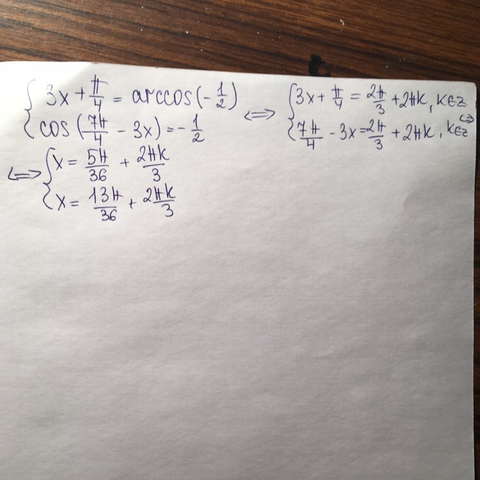 { 3x + π/4 = arccos(-1/2)
cos(7π/4 - 3x) = -1/2
<=> { 3x + π/4 = 2π/3 + 2πk, k∈Z
7π/4 - 3x = 2π/3 + 2πk, k∈Z <=>
<=> { x = 5π/36 + 2πk/3
x = 13π/36 + 2πk/3